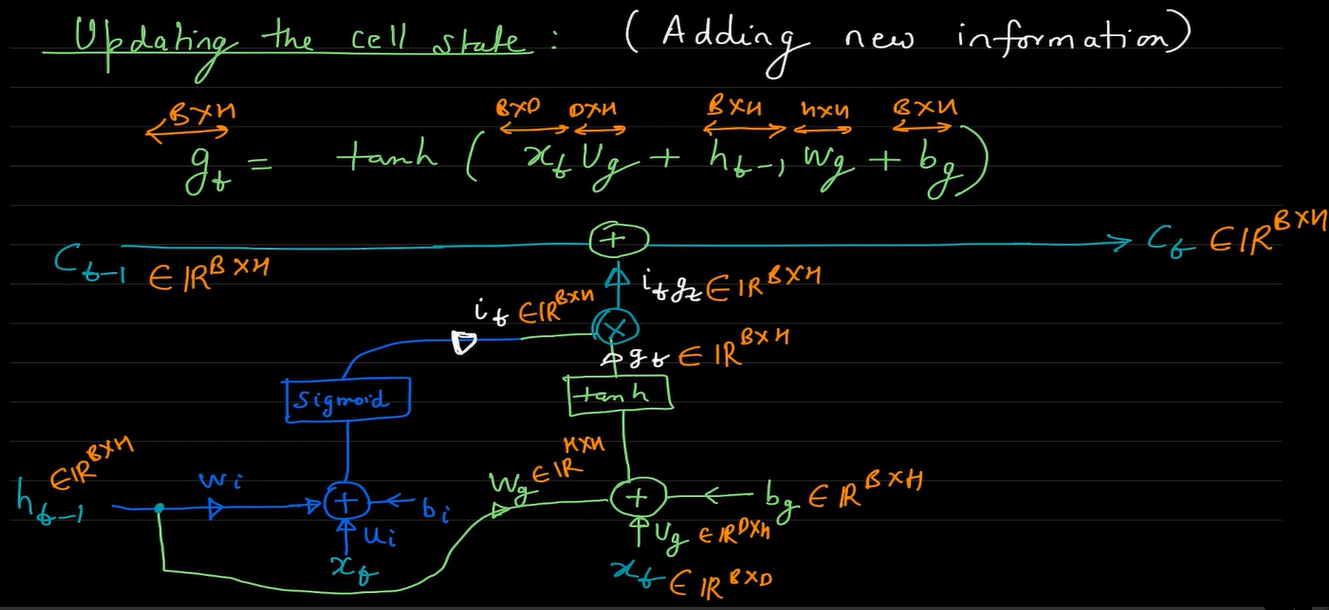 Updating the cell state : (Adding new information)
B×H B×D D×H B×H H×H B×H
g_t = tanh ( x_t U_g + h_{t-1} W_g + b_g )
C_{t-1} ∈ ℝ^{B×H} + C_t ∈ ℝ^{B×H}
i_t g_t ∈ ℝ^{B×H}
i_t ∈ ℝ^{B×H} ×
g_t ∈ ℝ^{B×H}
Sigmoid tanh
h_{t-1} ∈ ℝ^{B×H} W_i + b_i W_g ∈ ℝ^{H×H} + b_g ∈ ℝ^{B×H}
U_i U_g ∈ ℝ^{D×H}
x_t x_t ∈ ℝ^{B×D}